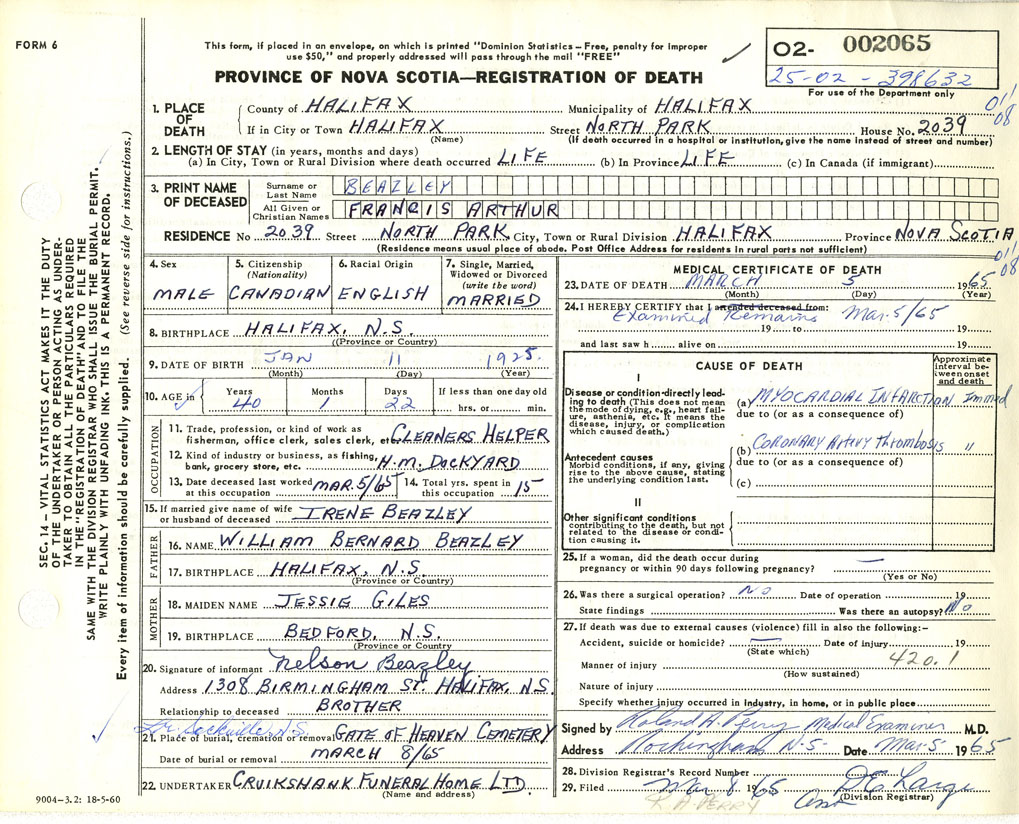 FORM 6
This form, if placed in an envelope, on which is printed "Dominion Statistics — Free, penalty for improper
use $50," and properly addressed will pass through the mail "FREE"
PROVINCE OF NOVA SCOTIA—REGISTRATION OF DEATH
O2- 002065
25-02-398632
For use of the Department only
011
08
1. PLACE OF DEATH
County of HALIFAX Municipality of HALIFAX
If in City or Town HALIFAX Street NORTH PARK House No. 2039
(Name) (If death occurred in a hospital or institution, give the name instead of street and number)
2. LENGTH OF STAY (in years, months and days)
(a) In City, Town or Rural Division where death occurred LIFE (b) In Province LIFE (c) In Canada (if immigrant)
3. PRINT NAME OF DECEASED
Surname or Last Name BEAZLEY
All Given or Christian Names FRANCIS ARTHUR
RESIDENCE No 2039 Street NORTH PARK City, Town or Rural Division HALIFAX Province NOVA SCOTIA
(Residence means usual place of abode. Post Office Address for residents in rural parts not sufficient)
011
08
4. Sex MALE
5. Citizenship (Nationality) CANADIAN
6. Racial Origin ENGLISH
7. Single, Married, Widowed or Divorced (write the word) MARRIED
8. BIRTHPLACE HALIFAX, N.S.
((Province or Country)
9. DATE OF BIRTH JAN 11 1925.
(Month) (Day) (Year)
10. AGE in Years 40 Months 1 Days 22 If less than one day old hrs. or min.
OCCUPATION
11. Trade, profession, or kind of work as
fisherman, office clerk, sales clerk, etc. CLEANERS HELPER
12. Kind of industry or business, as fishing,
bank, grocery store, etc. H.M. DOCKYARD
13. Date deceased last worked at this occupation MAR. 5/65 14. Total yrs. spent in this occupation 15
15. If married give name of wife or husband of deceased IRENE BEAZLEY
FATHER
16. NAME WILLIAM BERNARD BEAZLEY
17. BIRTHPLACE HALIFAX, N.S.
(Province or Country)
MOTHER
18. MAIDEN NAME JESSIE GILES
19. BIRTHPLACE BEDFORD, N.S.
(Province or Country)
20. Signature of informant Nelson Beazley
Address 1308 BIRMINGHAM ST. HALIFAX, N.S.
Relationship to deceased BROTHER
Lr. Sackville, N.S.
21. Place of burial, cremation or removal GATE OF HEAVEN CEMETERY
Date of burial or removal MARCH 8/65
22. UNDERTAKER CRUIKSHANK FUNERAL HOME LTD.
(Name and address)
MEDICAL CERTIFICATE OF DEATH
23. DATE OF DEATH MARCH 5 1965
(Month) (Day) (Year)
24. I HEREBY CERTIFY that I attended deceased from:
Examined Remains Mar. 5/65
19 to 19
and last saw h alive on 19
CAUSE OF DEATH
Approximate interval between onset and death
I
Disease or condition directly leading to death (This does not mean the mode of dying, e.g., heart failure, asthenia, etc. It means the disease, injury, or complication which caused death.)
(a) MYOCARDIAL INFARCTION Immed
due to (or as a consequence of)
Antecedent causes
Morbid conditions, if any, giving rise to the above cause, stating the underlying condition last.
(b) CORONARY Artery Thrombosis "
due to (or as a consequence of)
(c)
II
Other significant conditions
contributing to the death, but not related to the disease or condition causing it.
25. If a woman, did the death occur during
pregnancy or within 90 days following pregnancy? —
(Yes or No)
26. Was there a surgical operation? NO Date of operation 19
State findings Was there an autopsy? No
27. If death was due to external causes (violence) fill in also the following:—
Accident, suicide or homicide? — Date of injury 19
(State which)
420.1
Manner of injury
(How sustained)
Nature of injury
Specify whether injury occurred in Industry, in home, or in public place
Signed by Roland A. Perry Medical Examiner M.D.
Address Rockingham N.S. Date Mar 5 1965
28. Division Registrar's Record Number
29. Filed Mar 8 1965
(Division Registrar)
R. A. PERRY
SEC. 14 — VITAL STATISTICS ACT MAKES IT THE DUTY
OF THE UNDERTAKER OR PERSON ACTING AS UNDER-
TAKER TO OBTAIN ALL THE PARTICULARS REQUIRED
IN THE "REGISTRATION OF DEATH" AND TO FILE THE
SAME WITH THE DIVISION REGISTRAR WHO SHALL ISSUE THE BURIAL PERMIT.
WRITE PLAINLY WITH UNFADING INK. THIS IS A PERMANENT RECORD.
Every item of information should be carefully supplied. (See reverse side for instructions.)
9004-3.2: 18-5-60